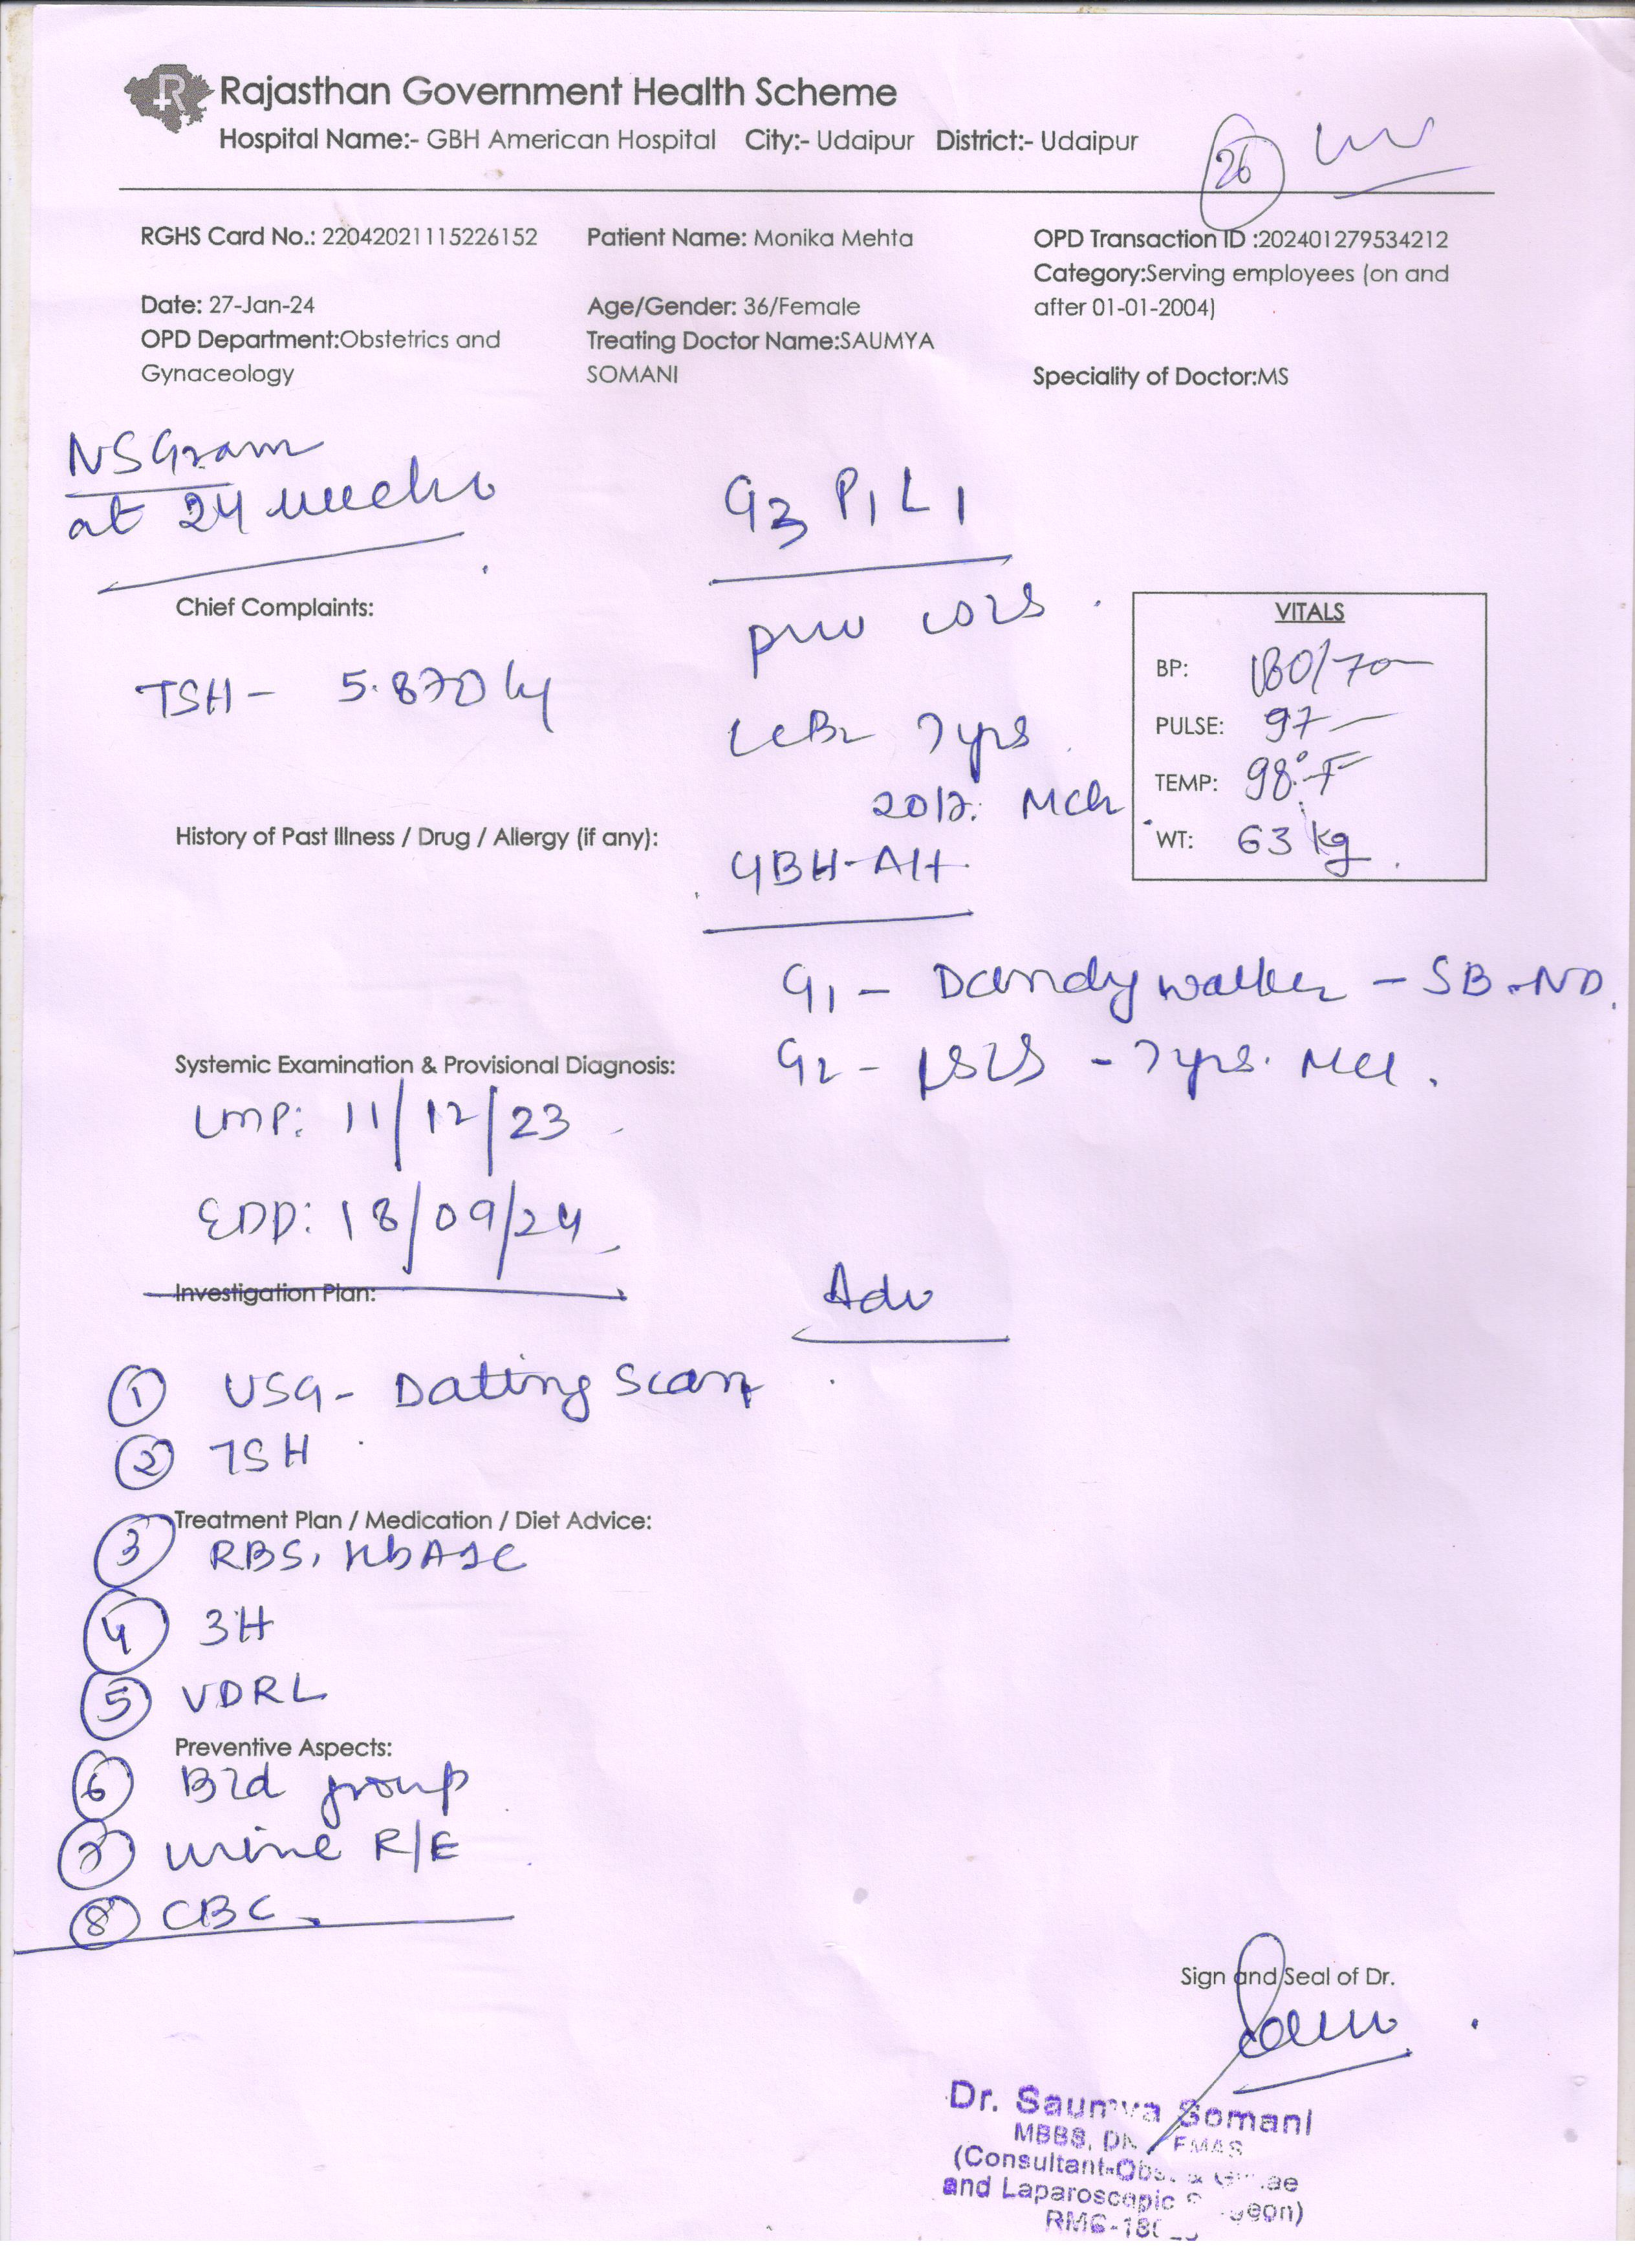 Rajasthan Government Health Scheme
Hospital Name:- GBH American Hospital City:- Udaipur District:- Udaipur
26
RGHS Card No.: 22042021115226152 Patient Name: Monika Mehta OPD Transaction ID :202401279534212
Category:Serving employees (on and
Date: 27-Jan-24 Age/Gender: 36/Female after 01-01-2004)
OPD Department:Obstetrics and Treating Doctor Name:SAUMYA
Gynaceology SOMANI Speciality of Doctor:MS
NSGram
at 24 weeks
G3 P1 L1
Chief Complaints:
prev LSCS
VITALS
BP: 130/70
TSH - 5.870
PULSE: 97
LCB 7yrs
TEMP: 98°F
2017: MCh
History of Past Illness / Drug / Allergy (if any):
WT: 63 kg
GBH-AH
G1 - Dandy walker - SB-ND
Systemic Examination & Provisional Diagnosis:
G2 - LSCS - 7yrs. MCh.
LMP: 11/12/23
EDD: 18/09/24
Investigation Plan:
Adv
1 USG - Dating Scan
2 TSH
Treatment Plan / Medication / Diet Advice:
3 RBS, HbA1c
4 3H
5 VDRL
Preventive Aspects:
6 Bld group
7 urine R/E
8 CBC
Sign and Seal of Dr.
Dr. Saumya Somani
MBBS, FMAS
(Consultant-Obs. &
and Laparoscopic